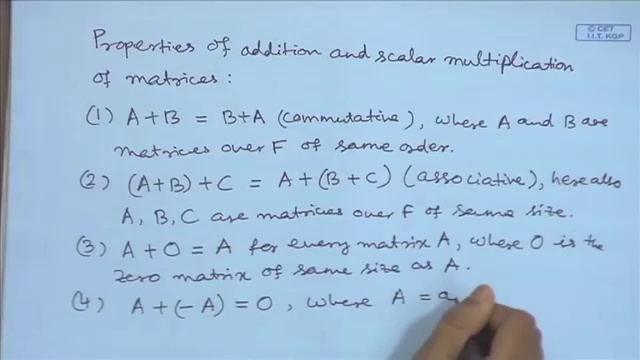 © CET
I.I.T. KGP
Properties of addition and scalar multiplication
of matrices :
(1) A+B = B+A (commutative), where A and B are
matrices over F of same order.
(2) (A+B)+C = A+(B+C) (associative), here also
A, B, C are matrices over F of same size.
(3) A+O = A for every matrix A, where O is the
zero matrix of same size as A.
(4) A+(-A) = O, where A = a